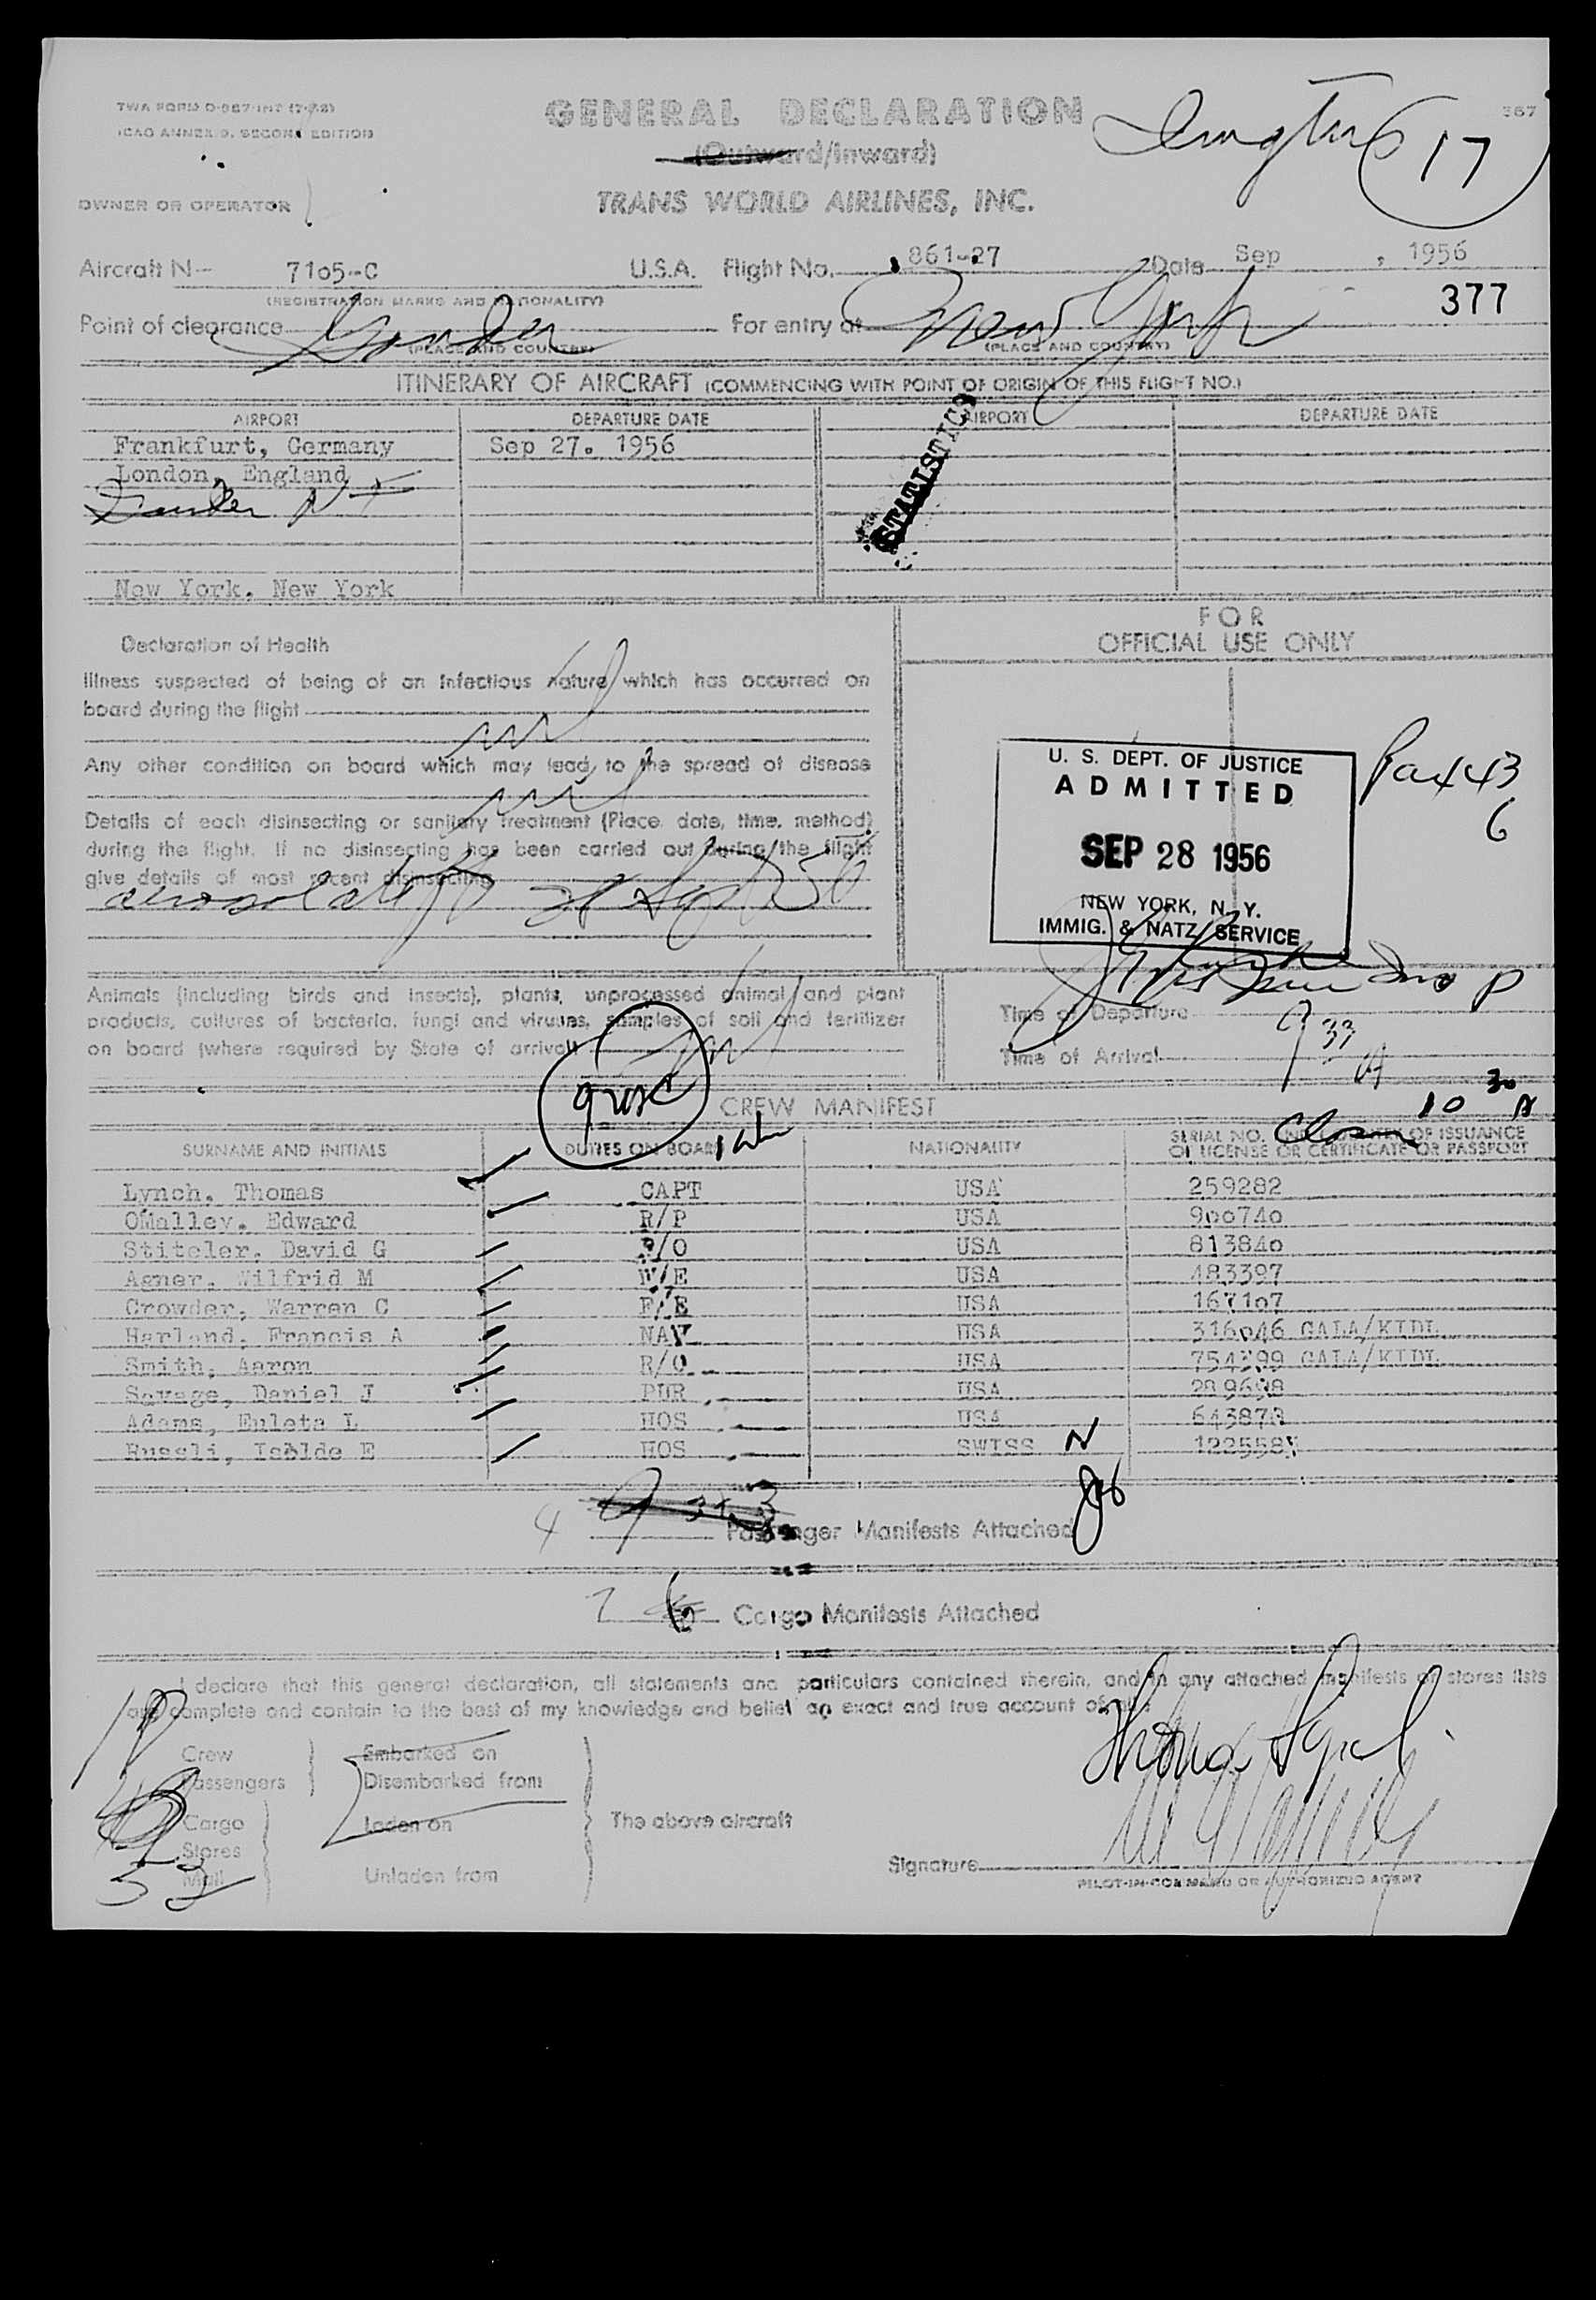 TWA FORM D-867-INT
ICAO ANNEX 9, SECOND EDITION
GENERAL DECLARATION
(Outward/Inward)
17
367
OWNER OR OPERATOR
TRANS WORLD AIRLINES, INC.
Aircraft N- 7105-C U.S.A. Flight No. 861-27 Date Sep , 1956
(REGISTRATION MARKS AND NATIONALITY)
377
Point of clearance Gander For entry at New York
(PLACE AND COUNTRY) (PLACE AND COUNTRY)
ITINERARY OF AIRCRAFT (COMMENCING WITH POINT OF ORIGIN OF THIS FLIGHT NO.)
AIRPORT DEPARTURE DATE AIRPORT DEPARTURE DATE
Frankfurt, Germany Sep 27. 1956
London, England
Gander N F
STATISTICS
New York, New York
FOR
OFFICIAL USE ONLY
Declaration of Health
Illness suspected of being of an infectious nature which has occurred on
board during the flight
nil
Any other condition on board which may lead to the spread of disease
nil
Details of each disinsecting or sanitary treatment (Place, date, time, method)
during the flight. If no disinsecting has been carried out during the flight
give details of most recent disinsecting
aerosol 28 Sept 56
U. S. DEPT. OF JUSTICE
ADMITTED
SEP 28 1956
NEW YORK, N. Y.
IMMIG. & NATZ SERVICE
Pax 43
6
Animals (including birds and insects), plants, unprocessed animal and plant
products, cultures of bacteria, fungi and viruses, samples of soil and fertilizer
on board (where required by State of arrival)
nil
Time of Departure
Time of Arrival 9 33 A
10 30 A
CREW MANIFEST
SURNAME AND INITIALS DUTIES ON BOARD NATIONALITY SERIAL NO. AND STATE OF ISSUANCE
OF LICENSE OR CERTIFICATE OR PASSPORT
Lynch, Thomas CAPT USA 259282
OMalley, Edward R/P USA 900740
Stiteler, David G F/O USA 813840
Agner, Wilfrid M F/E USA 483397
Crowder, Warren C F/E USA 167107
Harland, Francis A NAV USA 316046 GALA/KIDL
Smith, Aaron R/O USA 754399 GALA/KIDL
Savage, Daniel J PUR USA 289698
Adams, Euleta L HOS USA 643878
Russli, Isolde E HOS SWISS N
4 Passenger Manifests Attached
7 Cargo Manifests Attached
I declare that this general declaration, all statements and particulars contained therein, and in any attached manifests or stores lists
are complete and contain to the best of my knowledge and belief an exact and true account of all:
Crew Embarked on
Passengers Disembarked from
Cargo Laden on The above aircraft
Stores
Mail Unladen from
Signature
PILOT-IN-COMMAND OR AUTHORIZED AGENT